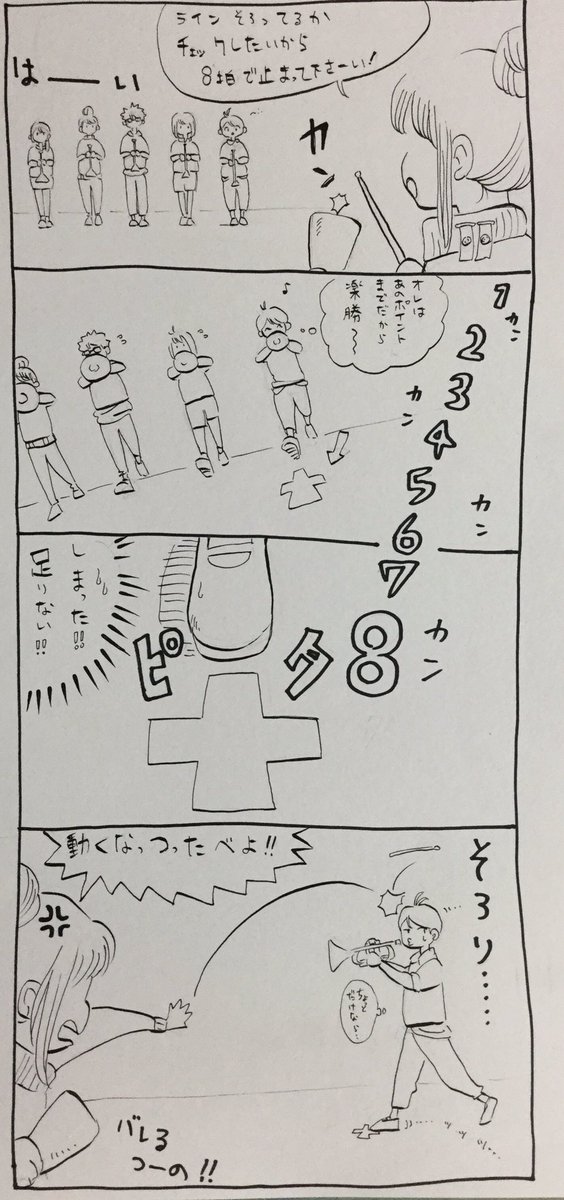 ライン そろってるか
チェックしたいから
8拍で止まって下さーい！
はーい
カン
1
カン
2
3
カン
4
5
カン
6
7
8
カン
オレは
あのポイント
までだから
楽勝〜〜
♪
しまった!!
足りない!!
ピタ
動くなっつったべよ!!
そろり……
ちょっと
だけなら…
バレる
つーの!!